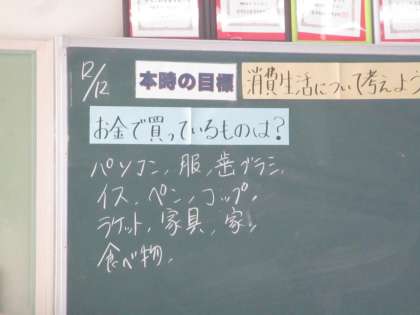 12/12
本時の目標 消費生活について考えよう
お金で買っているものは？
パソコン, 服, 歯ブラシ,
イス, ペン, コップ,
ラケット, 家具, 家,
食べ物,